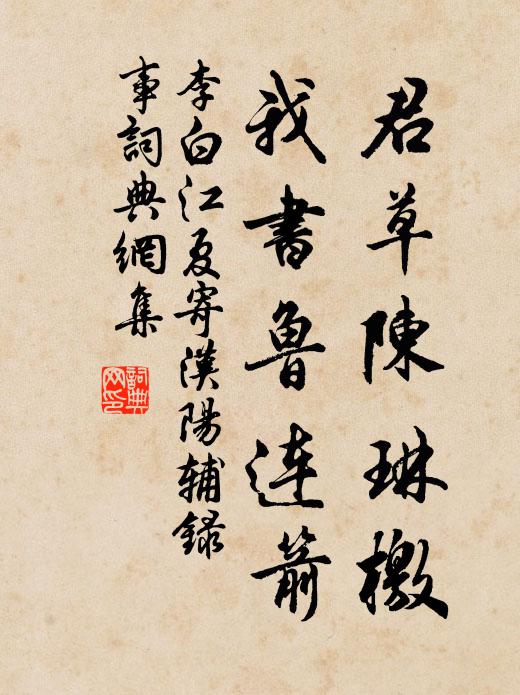 君草陳琳檄
我書魯連箭
李白江夏寄漢陽輔錄
事詞典網集
詞典
网印